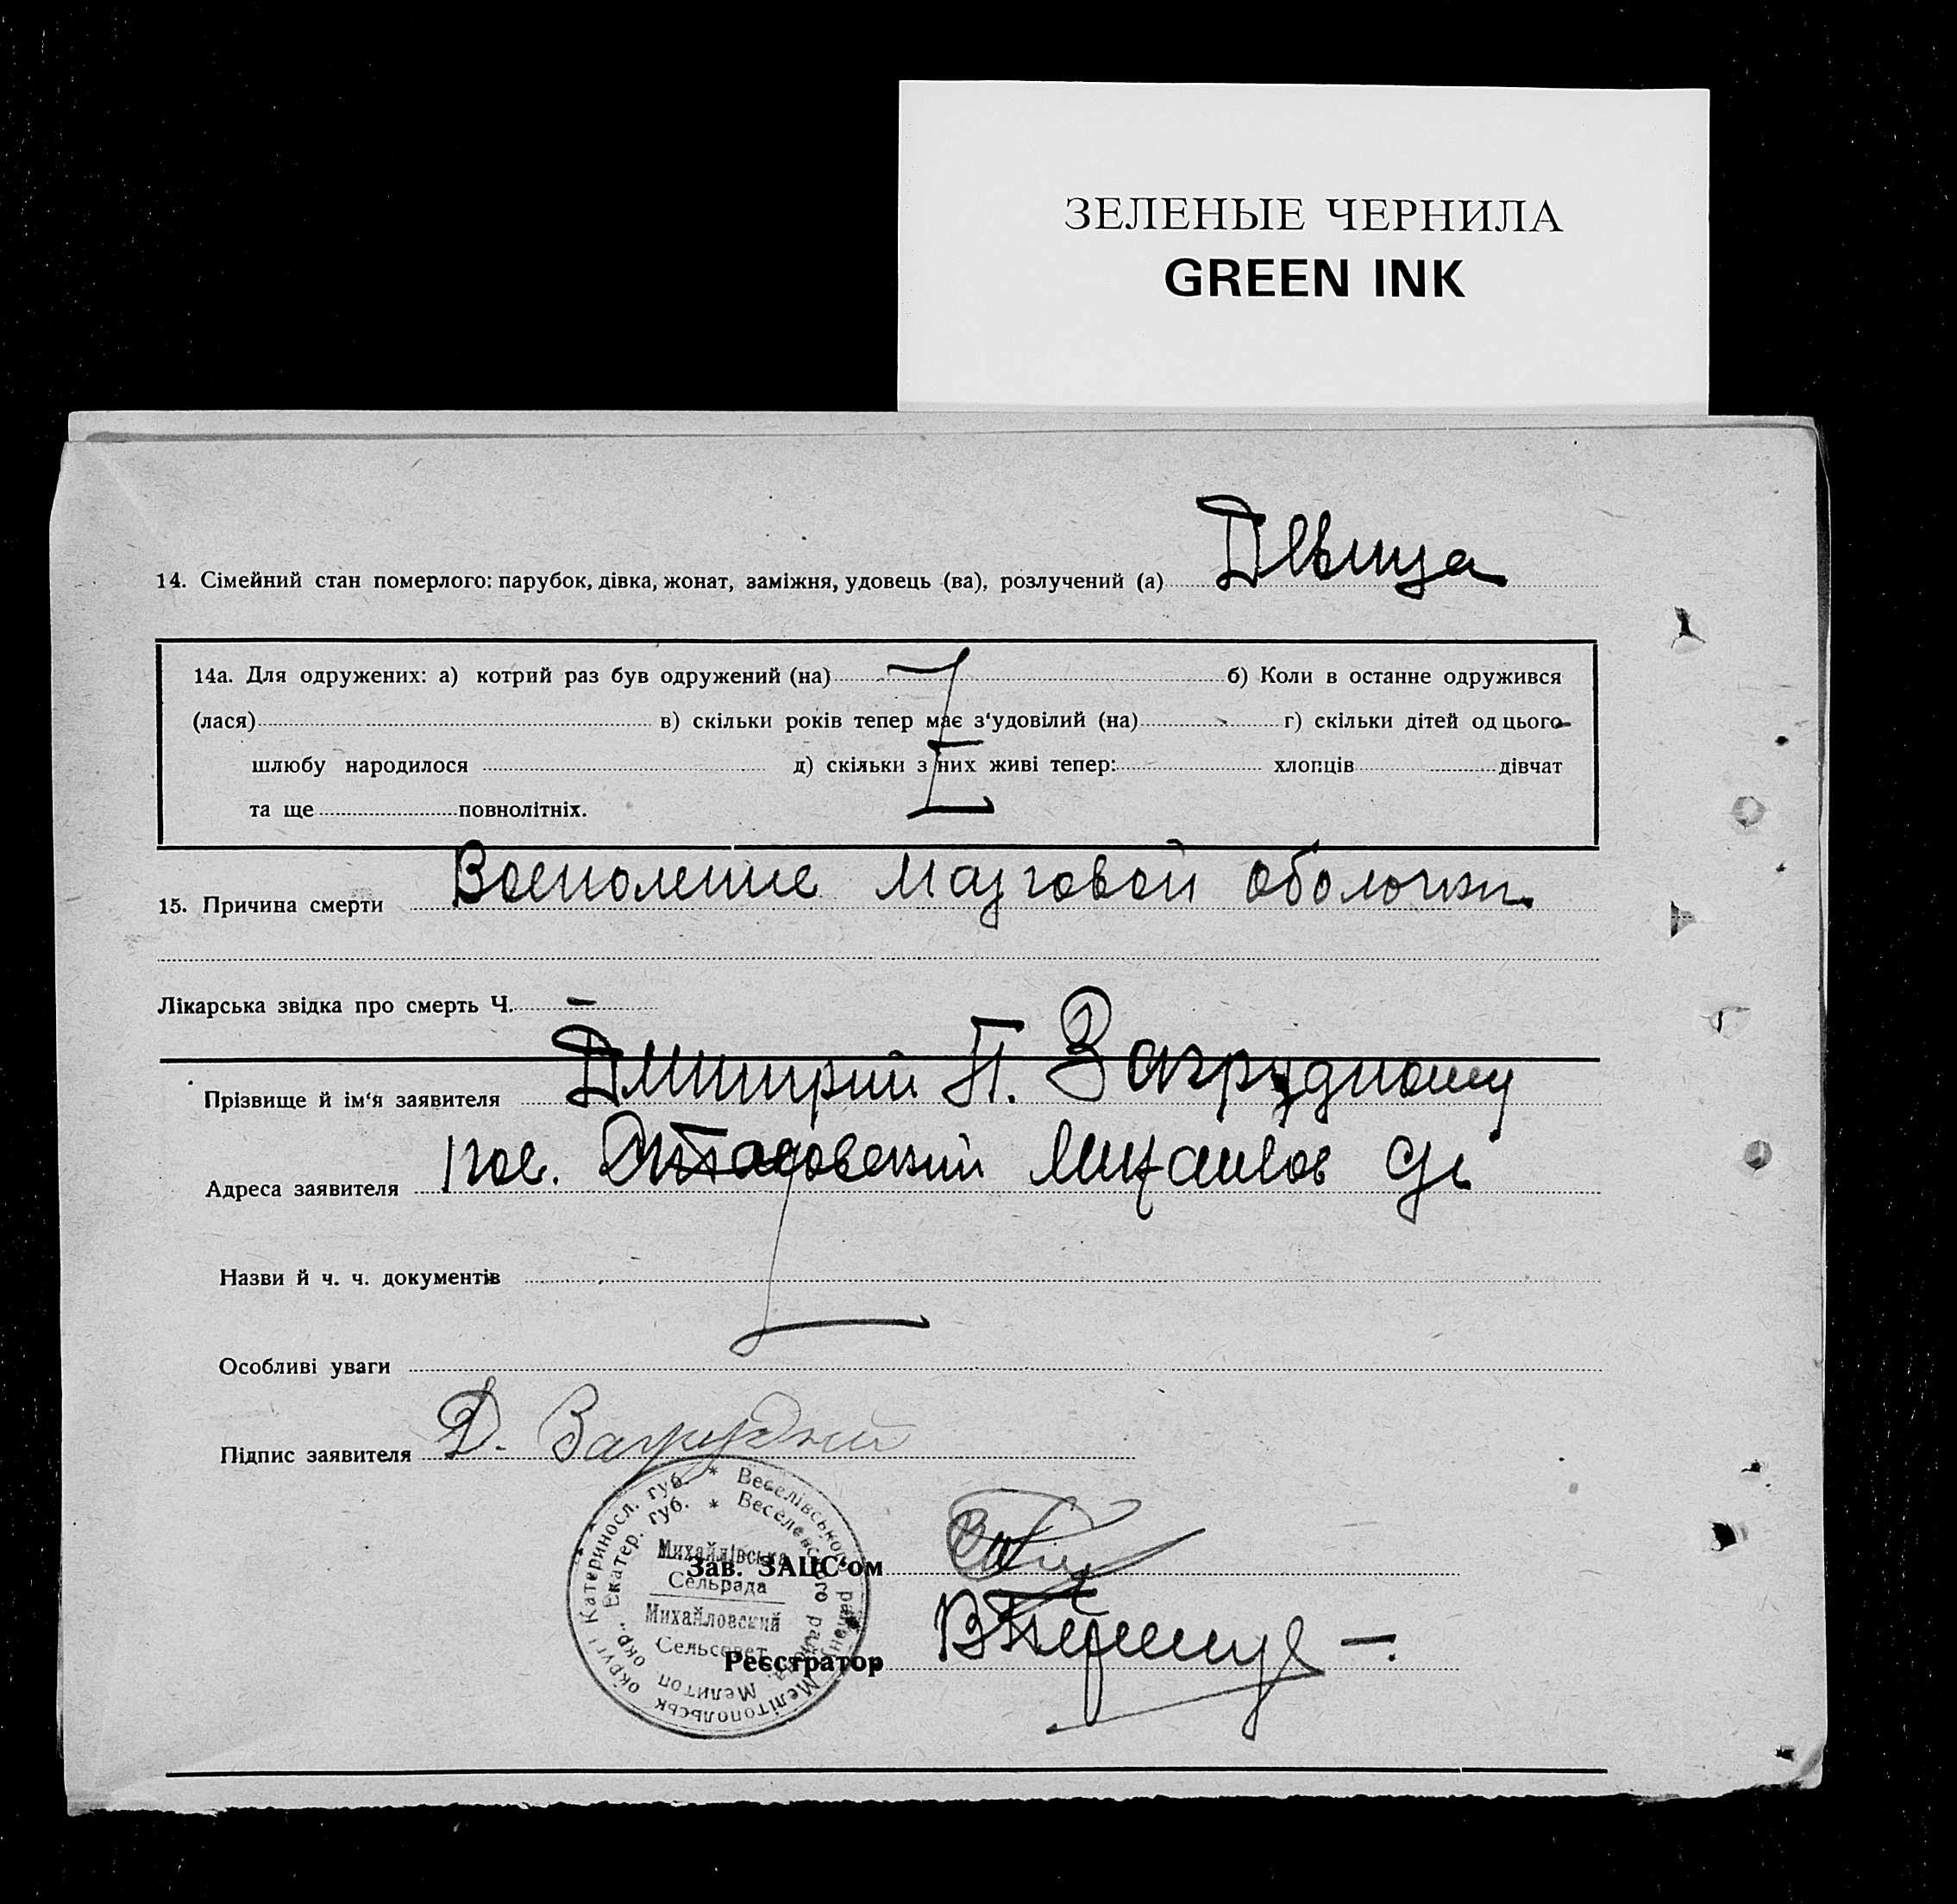 ЗЕЛЕНЫЕ ЧЕРНИЛА
GREEN INK
14. Сімейний стан померлого: парубок, дівка, жонат, заміжня, удовець (ва), розлучений (а) Дѣвица
14а. Для одружених: а) котрий раз був одружений (на) б) Коли в останне одружився
(лася) в) скільки років тепер має з‘удовілий (на) г) скільки дітей од цього
шлюбу народилося д) скільки з них живі тепер: хлопців дівчат
та ще повнолітніх.
15. Причина смерти Восполение мазговой оболочки
Лікарська звідка про смерть Ч. —
Прізвище й ім‘я заявителя Дмитрий П. Загрудному
Адреса заявителя пос. Михайлов с/с
Назви й ч. ч. документів
Особливі уваги
Підпис заявителя Д. Загрудний
Зав. ЗАЦС‘ом
Реєстратор
* Веселівського району Мелітопольськ округі Катеринosл. губ.
* Веселевского района Мелитоп. окр. Екатер. губ.
Михайлівська
Сельрада
Михайловский
Сельсовет